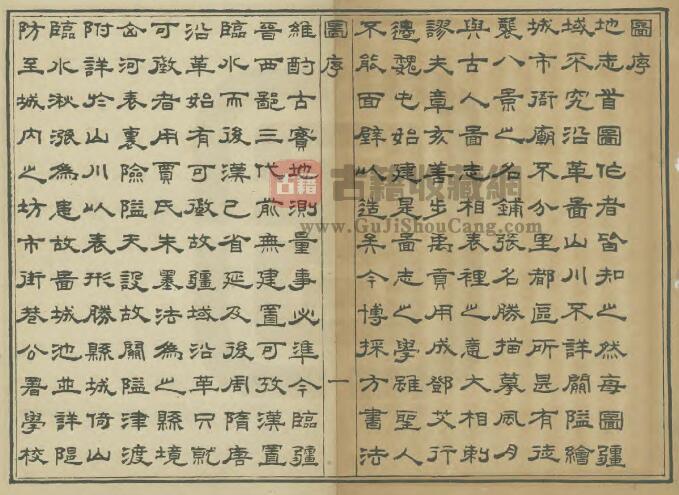 圖序
地志首圖作者皆知之然每圖疆
域不究沿革圖山川不詳關隘繪
城市衙廟不分里都區所甚有徒
襲八景之名鋪張名勝描摹風月
與古人圖志相表裡之意大相剌
謬夫章亥善步禹貢用成鄧艾行
邊魏屯始建是圖志之學雖聖人
不能面壁以造矣今博採方書法
圖序 一
維酌古實地測量事必準今臨疆
晉西鄙三代前無建置可攷漢置
臨水而後漢已省延及後周隋唐
沿革始有可徵故疆域沿革只就
可徵者用賈氏朱墨法為之縣境
河表裏險隘天設故關隘津渡
附詳於山川以表形勝縣城倚山
臨水湫漲為患故圖城池並詳隄
防至城內之坊市街巷公署學校
古籍 古籍收藏網
www.GuJiShouCang.com